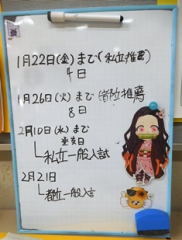 1月22日(金)まで(私立推薦)
4日
1月26日(火)まで 都立推薦
8日
2月10日(水)まで
私立一般入試
2月21日
都立一般入試